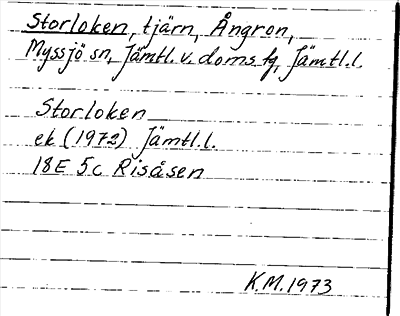 Storloken, tjärn, Ångron,
Myssjö sn, Jämtl. v. doms. fg, Jämtl.l.
Storloken
ek (1972) Jämtl.l.
18E 5c Risåsen
K.M. 1973